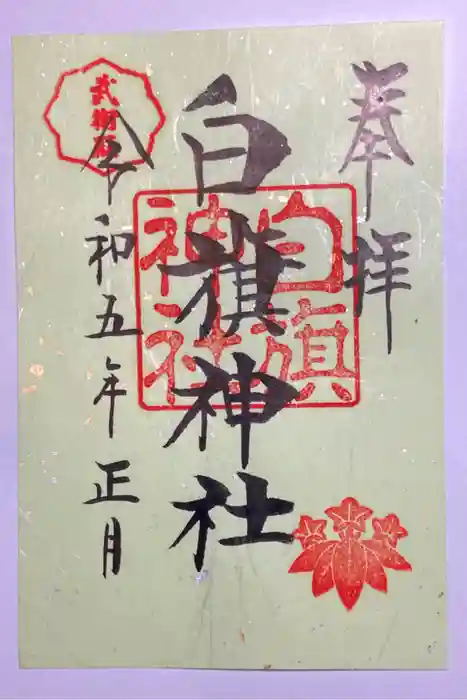 奉拝
白旗神社
白旗
神社
令和五年正月
武衛